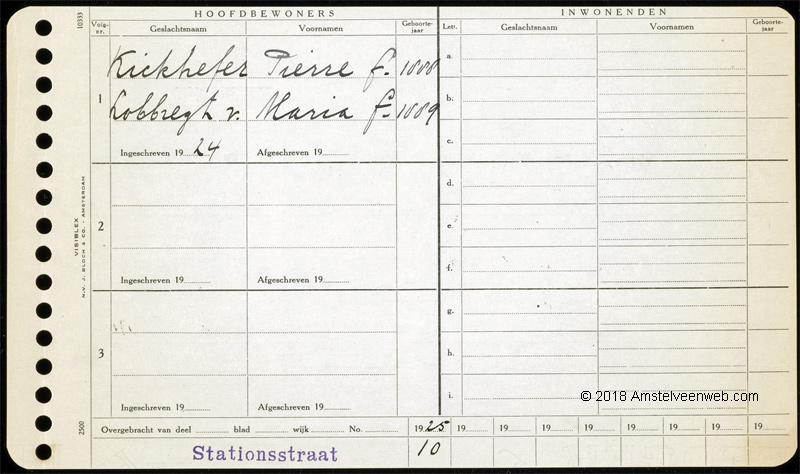 HOOFDBEWONERS INWONENDEN
Volg-nr. Geslachtsnaam Voornamen Geboorte-jaar Letr. Geslachtsnaam Voornamen Geboorte-jaar
10333
Kickhefer Pierre f. 1888 a.
1 Lobbregt v. Maria f. 1889 b.
c.
Ingeschreven 1924 Afgeschreven 19
d.
2 e.
f.
Ingeschreven 19 Afgeschreven 19
g.
3 h.
i.
Ingeschreven 19 Afgeschreven 19
VISIBLEX
N.V. J. BLOCH & CO. - AMSTERDAM
2500
© 2018 Amstelveenweb.com
Overgebracht van deel blad wijk No. 1925 19 19 19 19 19 19 19 19
Stationsstraat 10